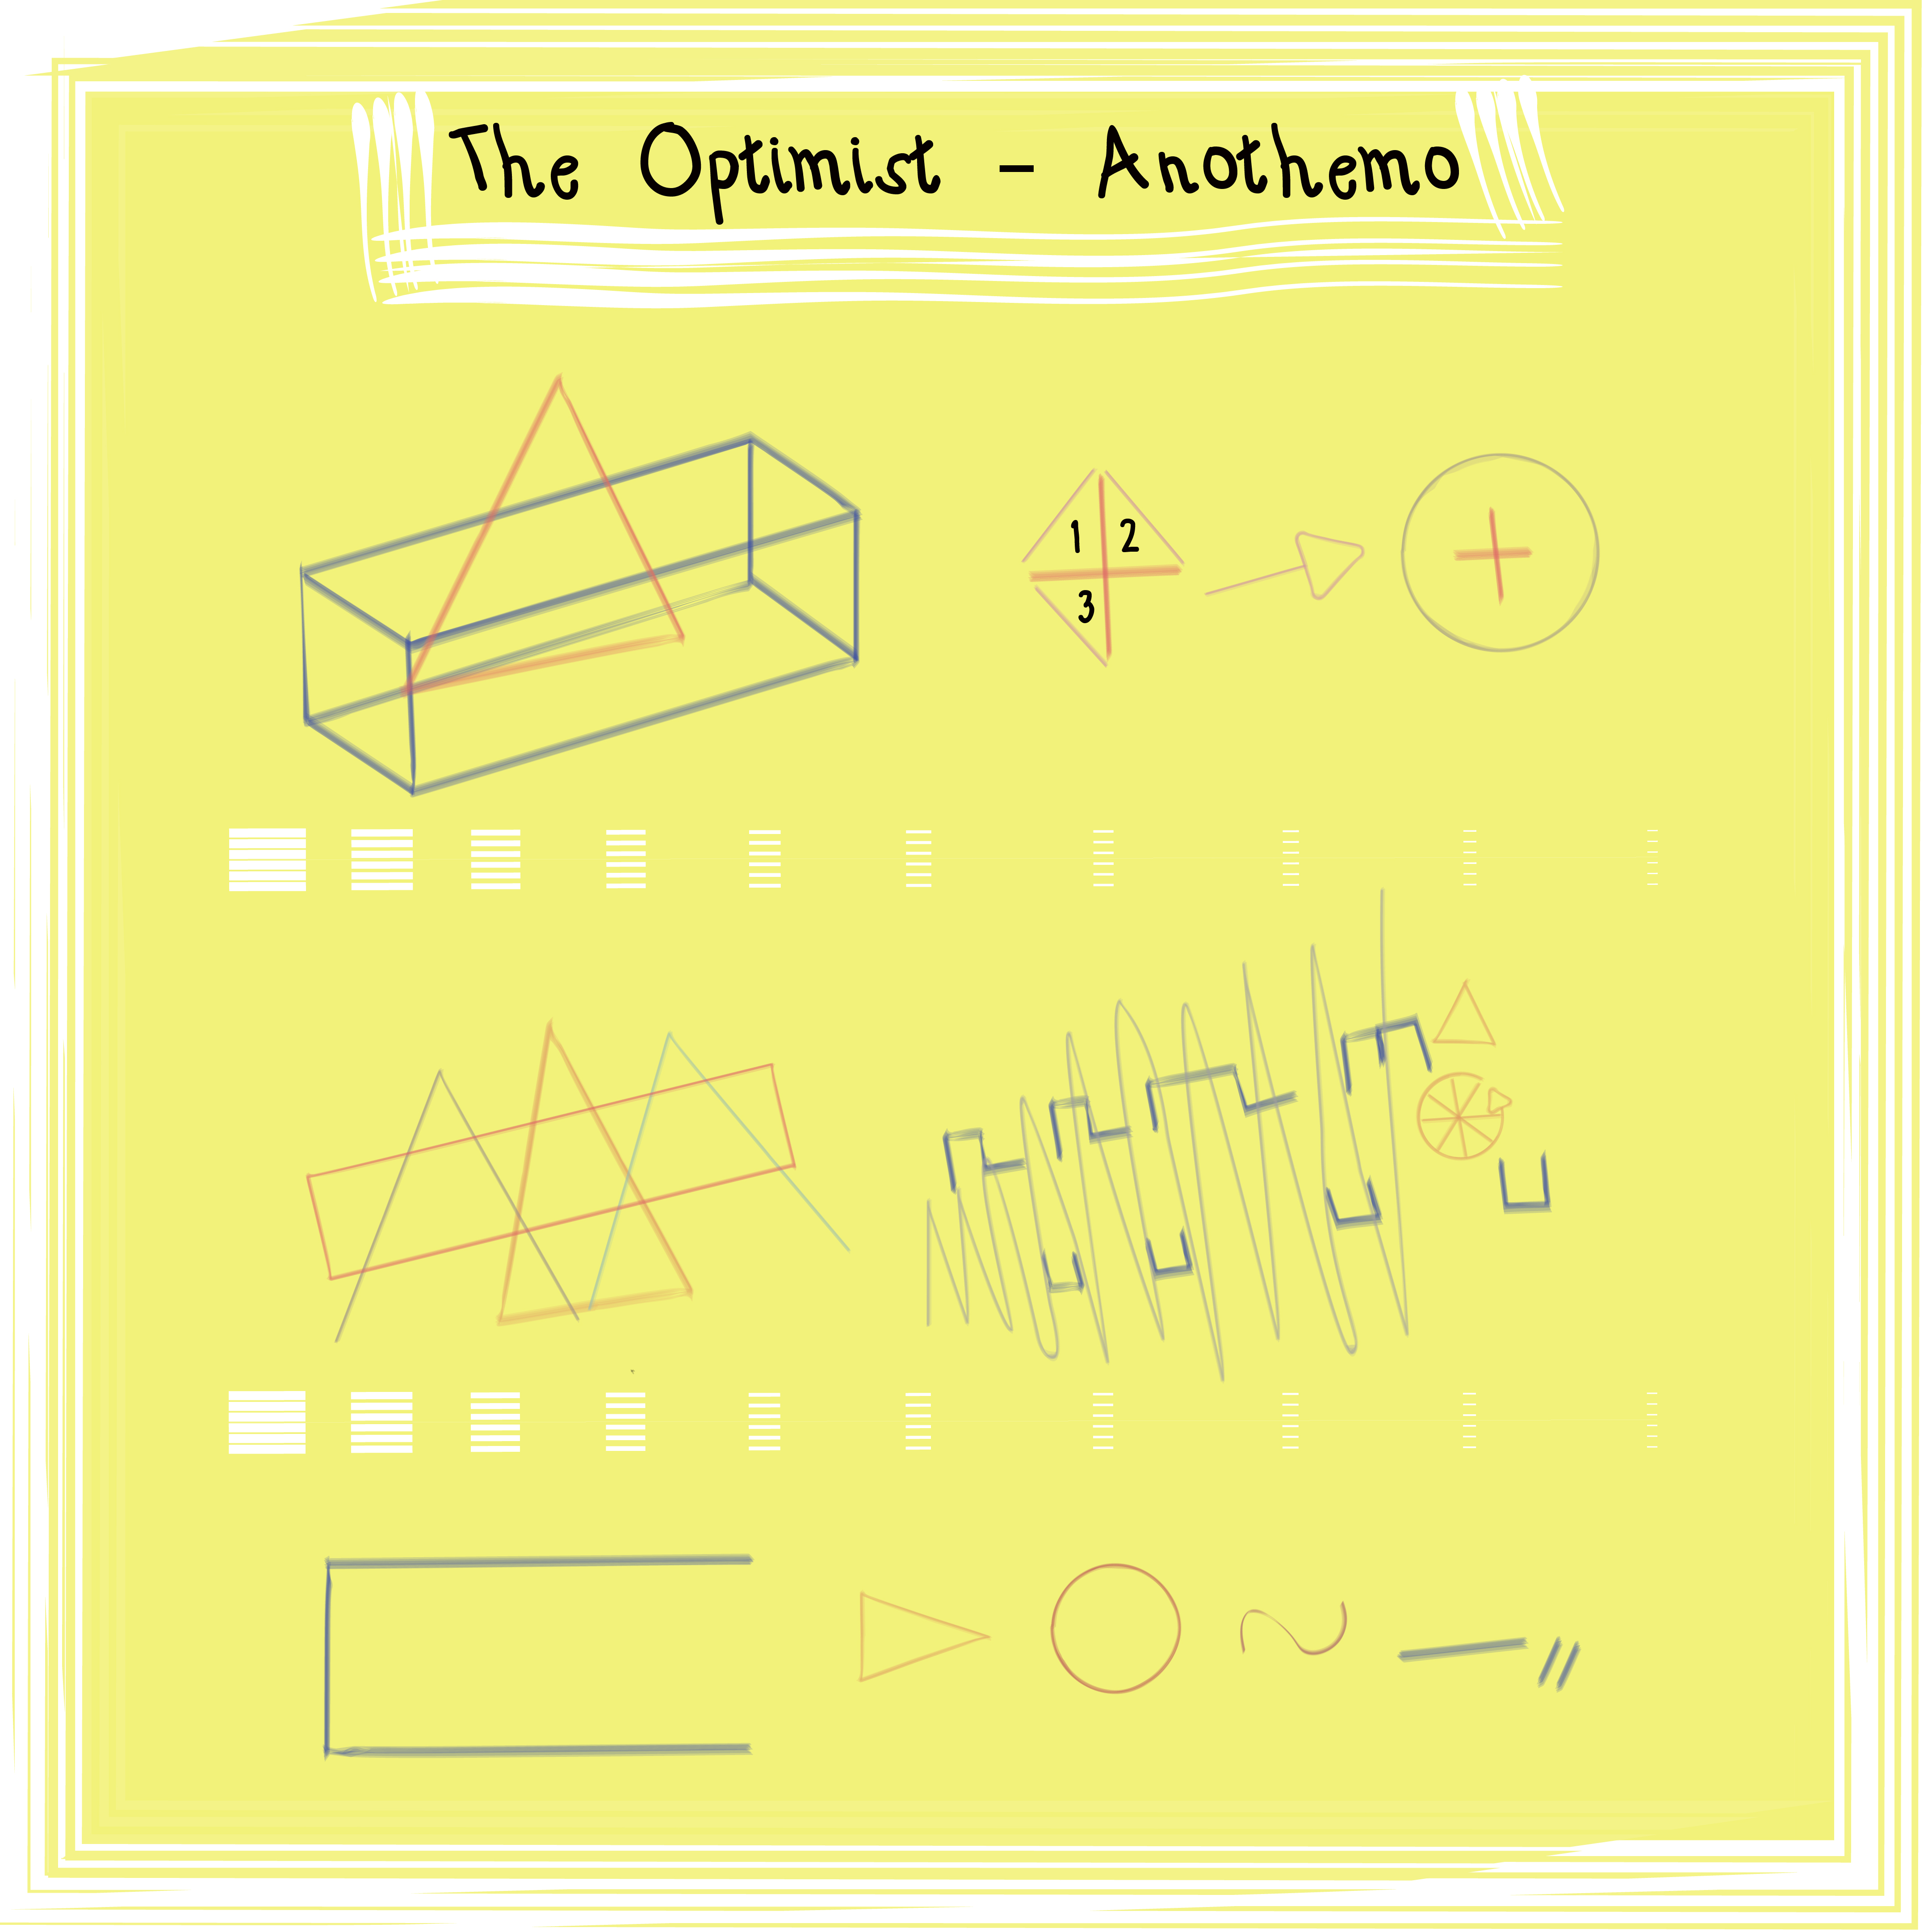 The Optimist – Anothemo
1 2
3